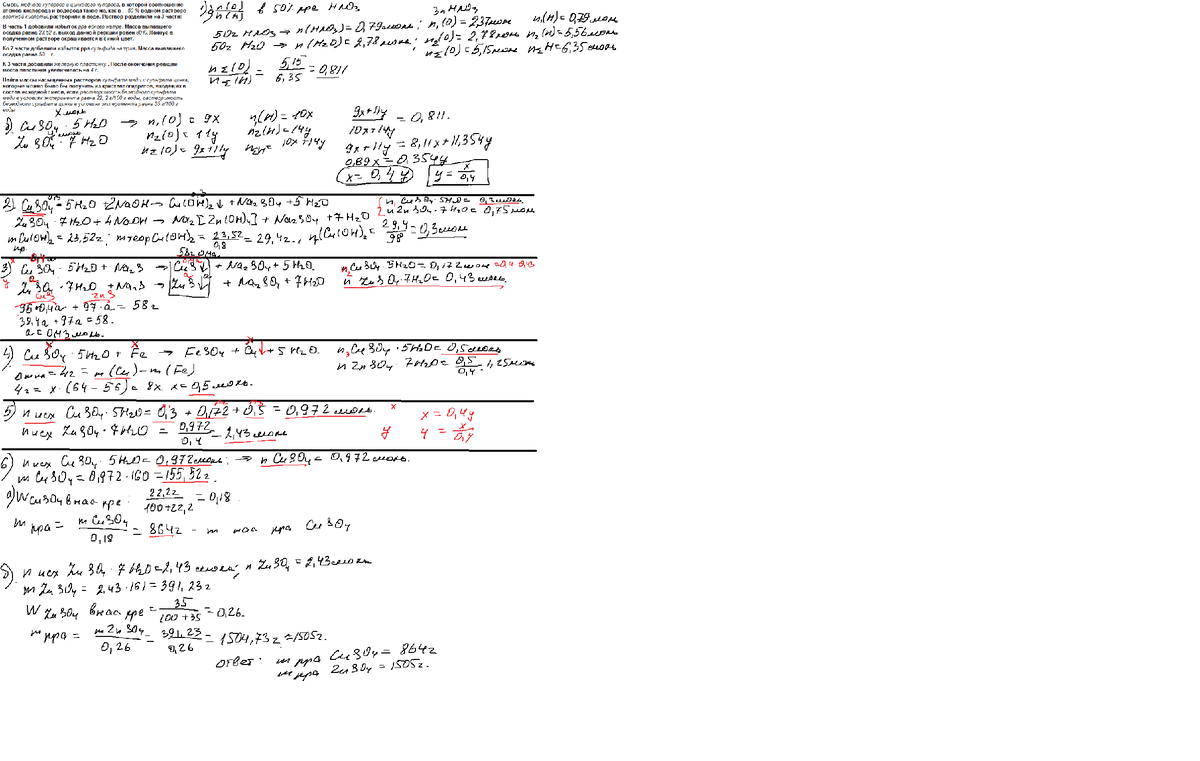 Смесь медного купороса и цинкового купороса, в которой соотношение
атомов кислорода и водорода такое же, как в 50 % водном растворе
азотной кислоты, растворили в воде. Раствор разделили на 3 части:
В часть 1 добавили избыток
осадка равна 23,52 г, выход данной реакции равен 80%. Лакмус в
полученном растворе окрашивается в синий цвет.
Ко 2 части добавили избыток р-ра сульфида натрия. Масса выпавшего
осадка равна 58 г
К 3 части добавили железную пластинку. После окончания реакции
масса пластинки увеличилась на 4 г.
Найти массы насыщенных растворов сульфата меди и сульфата цинка,
которые можно было бы получить из кристаллогидратов, входящих в
состав исходной смеси, если растворимость безводного сульфата
меди в условиях эксперимента равна 22,2 г/100 г воды, растворимость
безводного сульфата цинка в условиях эксперимента равна 35 г/100 г
воды
в 50% рре HNO3
50г HNO3 → n(HNO3) = 0,79моль; n1(O) = 2,37моль n1(H) = 0,79моль
50г H2O → n(H2O) = 2,78моль; n2(O) = 2,78моль n2(H) = 5,56моль
nΣ(O) = 5,15моль nΣH = 6,35моль
nΣ(O)/nΣ(H) = 5,15/6,35 = 0,811
x моль
CuSO4 · 5H2O → n1(O) = 9x n(H) = 10x (9x+11y)/(10x+14y) = 0,811.
y моль
ZnSO4 · 7H2O n2(O) = 11y n2(H) = 14y
nΣ(O) = 9x+11y nΣH = 10x+14y 9x+11y = 8,11x+11,354y
0,89x = 0,354y
x = 0,4y y = x/0,4
2) CuSO4 · 5H2O + 2NaOH → Cu(OH)2↓ + Na2SO4 + 5H2O n1 CuSO4 · 5H2O = 0,3моль
ZnSO4 · 7H2O + 4NaOH → Na2[Zn(OH)4] + Na2SO4 + 7H2O n ZnSO4 · 7H2O = 0,75моль
mпр. Cu(OH)2 = 23,52г; mтеор Cu(OH)2 = 23,52/0,8 = 29,4г., n(Cu(OH)2) = 29,4/98 = 0,3моль
3) CuSO4 · 5H2O + Na2S → CuS↓ + Na2SO4 + 5H2O. n2 CuSO4 · 5H2O = 0,172моль = 0,4·0,43
ZnSO4 · 7H2O + Na2S → ZnS↓ + Na2SO4 + 7H2O n ZnSO4 · 7H2O = 0,43моль.
CuS ZnS
96·0,4a + 97·a = 58г
38,4a + 97a = 58.
a = 0,43моль.
4) CuSO4 · 5H2O + Fe → FeSO4 + Cu↓ + 5H2O. n3 CuSO4 · 5H2O = 0,5моль
= 4г = m(Cu) - m(Fe) n ZnSO4 · 7H2O = 0,5/0,4 = 1,25моль
4г = x · (64 - 56) = 8x x = 0,5моль.
5) n исх CuSO4 · 5H2O = 0,3 + 0,172 + 0,5 = 0,972моль. x x = 0,4y
n исх ZnSO4 · 7H2O = 0,972/0,4 = 2,43моль y y = x/0,4
6) n исх CuSO4 · 5H2O = 0,972моль; ⇒ n CuSO4 = 0,972моль.
m CuSO4 = 0,972 · 160 = 155,52г.
а) W CuSO4 в нас рре: 22,2г/(100+22,2) = 0,18.
m рра = m CuSO4/0,18 = 864г - m нас рра CuSO4
б). n исх ZnSO4 · 7H2O = 2,43моль; n ZnSO4 = 2,43моль
m ZnSO4 = 2,43 · 161 = 391,23г
W ZnSO4 в нас рре = 35/(100+35) = 0,26.
m рра = m ZnSO4/0,26 = 391,23/0,26 = 1504,73г ≈ 1505г.
ответ: m рра CuSO4 = 864г
m рра ZnSO4 = 1505г.